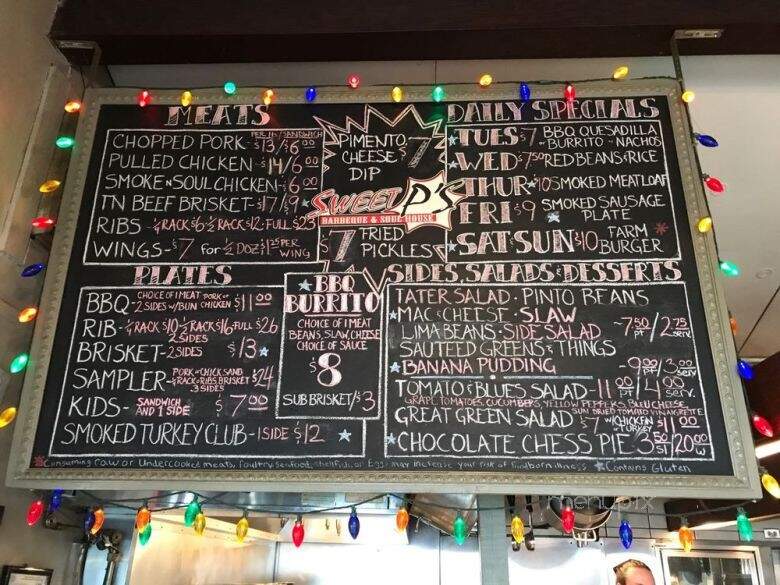 MEATS
PER lb / SANDWICH
CHOPPED PORK - $13/$6.00
PULLED CHICKEN - $14/6.00
SMOKE N SOUL CHICKEN - $6.00
TN BEEF BRISKET - $17/$9 *
RIBS - ¼ RACK $6 ½ RACK $12 - FULL $23
WINGS - $7 for ½ DOZ $1.25 PER WING
PIMENTO CHEESE DIP $7
SWEET P'S
BARBEQUE & SOUL HOUSE
$7 FRIED PICKLES
DAILY SPECIALS
TUES $7 BBQ QUESADILLA
- BURRITO - NACHOS
WED $7.50 RED BEANS & RICE
THUR $10 SMOKED MEATLOAF
FRI $9 SMOKED SAUSAGE PLATE
SAT SUN $10 FARM BURGER *
PLATES
BBQ - CHOICE OF 1 MEAT PORK or CHICKEN
2 SIDES w/BUN $11.00
RIB - ¼ RACK $10 - ½ RACK $16 - FULL $26
2 SIDES
BRISKET - 2 SIDES $13 *
SAMPLER - PORK or CHICK SAND
¼ RACK RIBS, BRISKET $24
3 SIDES
KIDS - SANDWICH AND 1 SIDE $7.00
SMOKED TURKEY CLUB - 1 SIDE $12 *
* BBQ BURRITO
CHOICE OF 1 MEAT
BEANS, SLAW, CHEESE
CHOICE OF SAUCE
$8
SUB BRISKET/$3
SIDES, SALADS & DESSERTS
TATER SALAD · PINTO BEANS
* MAC & CHEESE · SLAW
LIMA BEANS · SIDE SALAD - 7.50 pt / 2.75 serv.
SAUTEED GREENS & THINGS
* BANANA PUDDING - 9.00 pt / 3.00 serv.
TOMATO & BLUES SALAD - 11.00 pt / 4.00 serv.
GRAPE TOMATOES, CUCUMBERS, YELLOW PEPPERS, BLEU CHEESE
SUN DRIED TOMATO VINAIGRETTE
GREAT GREEN SALAD $7 w/CHICKEN or TURKEY $11.00
* CHOCOLATE CHESS PIE 3.50 Sl / 20.00 W
* Consuming raw or Undercooked meats, Poultry, Seafood, Shellfish, or Eggs may increase your risk of foodborn illness * Contains Gluten
menupix